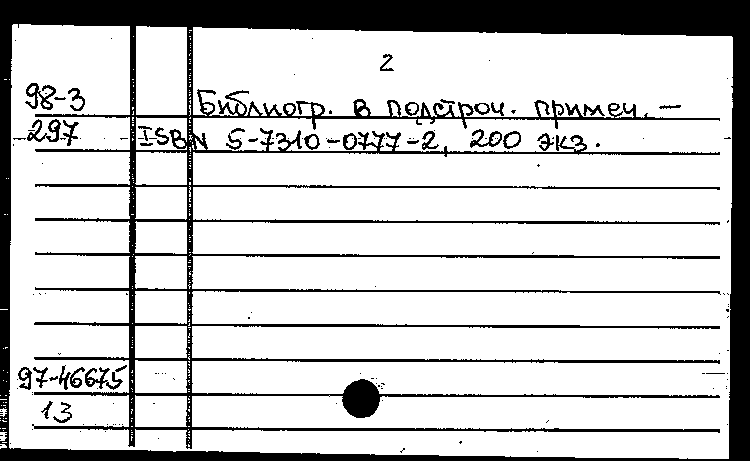 2
98-3 Библиогр. в подстроч. примеч. —
297 ISBN 5-7310-0777-2, 200 экз.
97-46675
13